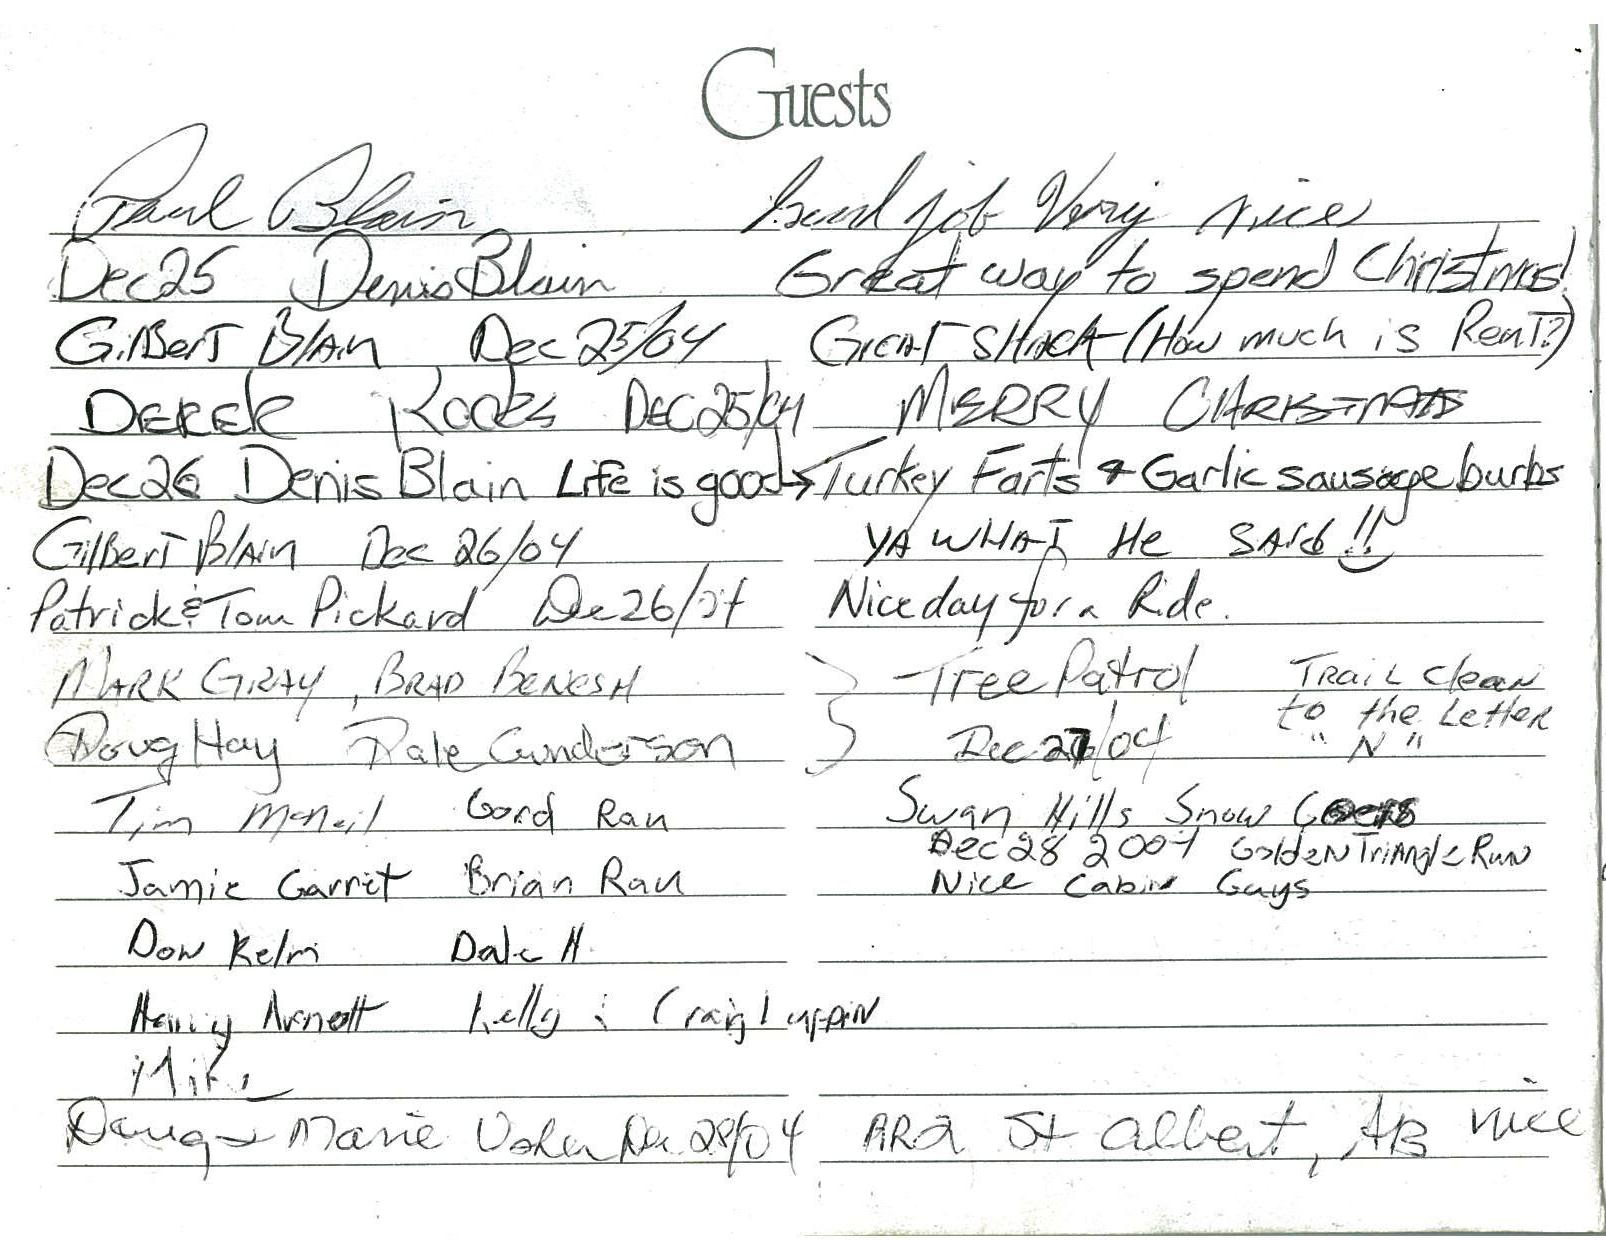 Guests
Paul Blain Good job Very nice
Dec 25 Denis Blain Great way to spend Christmas!
GilBerT BlAin Dec 25/04 GreAT SHACK (How much is RenT?)
DEREK DEC 25/04 MERRY CHRISTMAS
Dec 26 Denis Blain Life is good → Turkey Farts & Garlic sausage burbs
GilBerT BlAin Dec 26/04 YA WHAT He SAid !!
Patrick & Tom Pickard Dec 26/04 Nice day for a Ride.
MARK GRAY, BRAD BENESH Tree Patrol TRAIL Clean
to the Letter
Doug Hay Dale Gunderson Dec 27/04 "N"
Tim McNeil Gord Rau Swan Hills Snow Goers
Dec 28 2004 GoldeN TriANgle RuN
Jamie Garret Brian Rau Nice Cabin Guys
Don Kelm Dale H.
Harry Arnott Kelly & Craig
Mike
Doug & Marie Dec 28/04 St Albert, AB nice